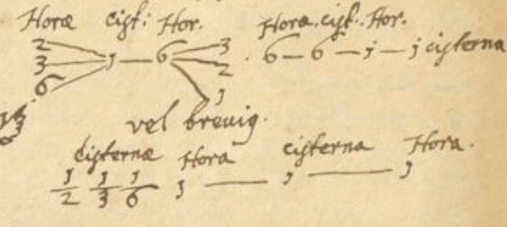 Horæ Cist: Hor. Hora. cist. Hor.
2 3
3 1 — 6 2 . 6 — 6 — 1 — 1 cisterna
6 1
vel breuig.
Cisternæ Hora cisterna Hora.
1/2 1/3 1/6 1 — 1 — 1